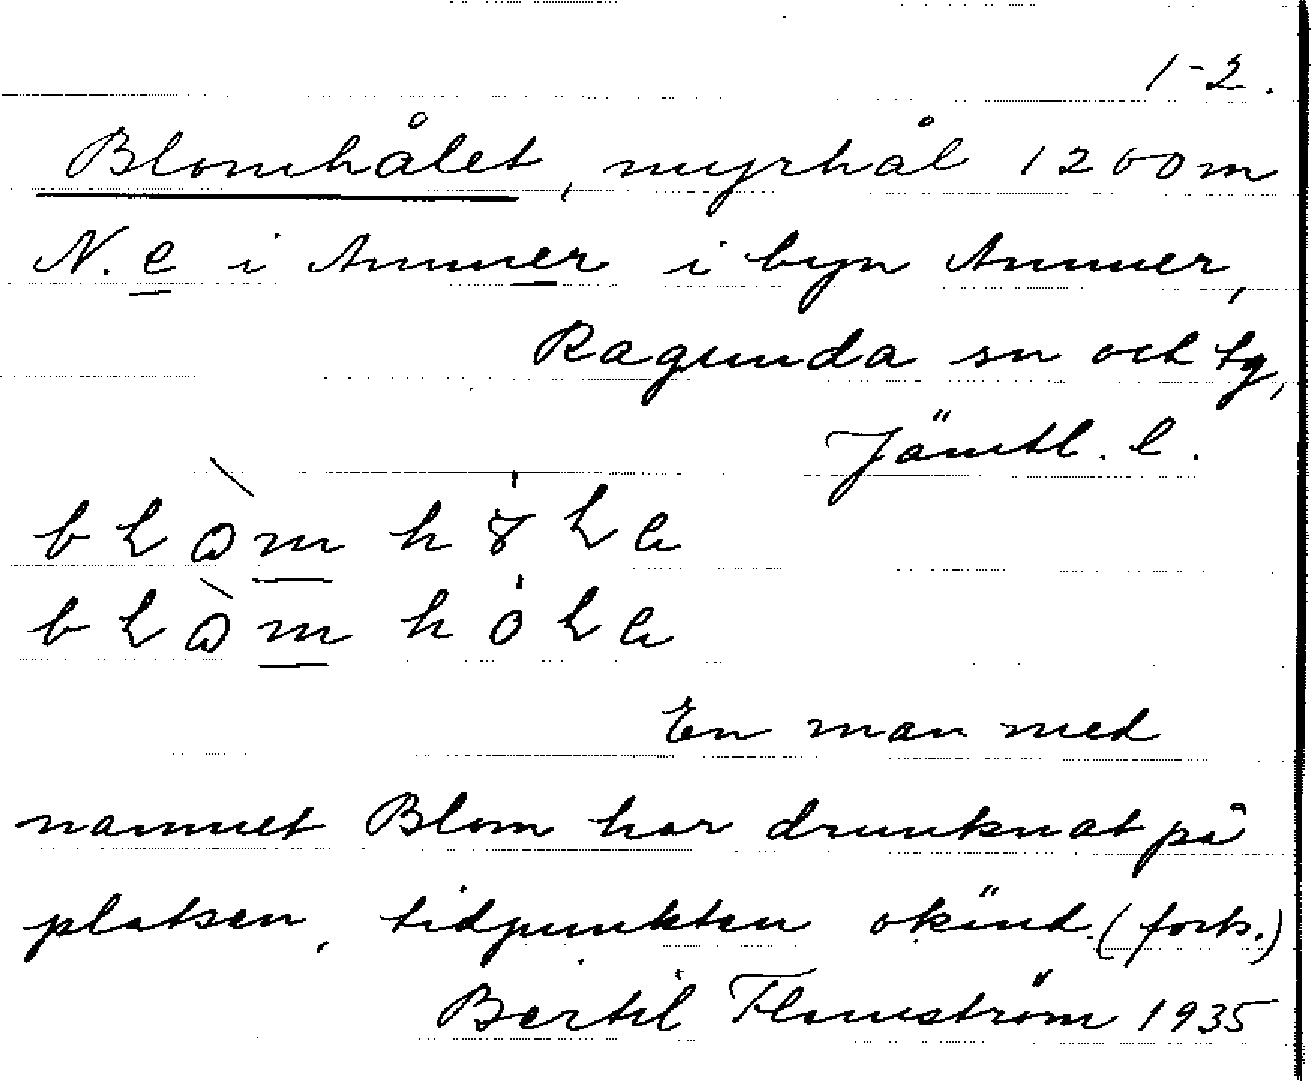 1-2.
Blomhålet, myrhål 1200m
N. e i Ammer i byn Ammer,
Ragunda sn och tg,
Jämtl. l.
En man med
namnet Blom har drunknat på
platsen, tidpunkten okänd. (forts.)
Bertil Flemström 1935